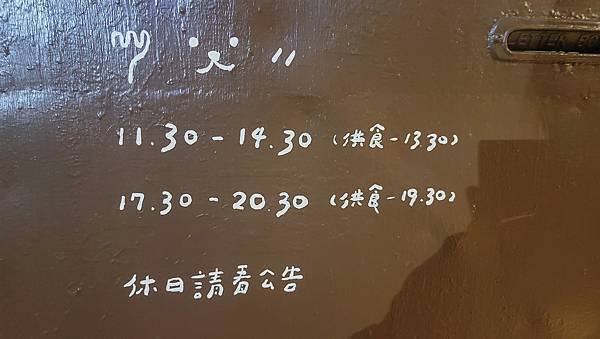 LETTER BO
11.30 - 14.30 (供食-13.30)
17.30 - 20.30 (供食-19.30)
休日請看公告